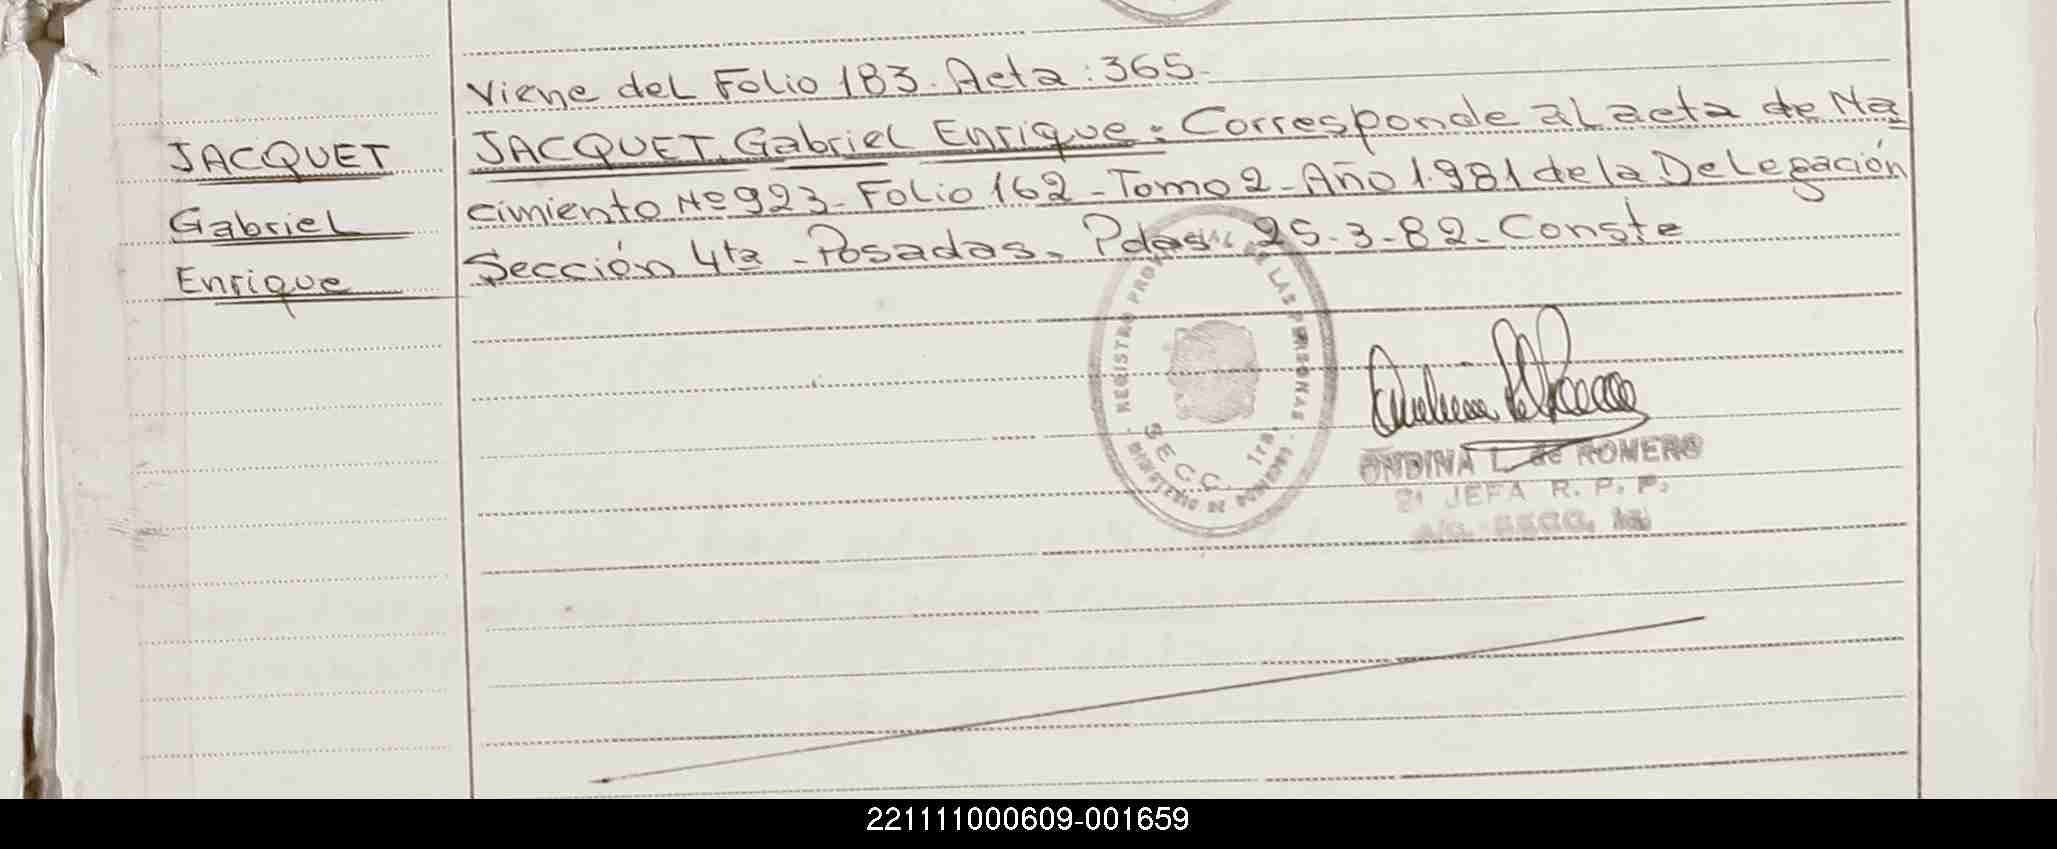 Viene del Folio 183. Acta: 365.
JACQUET
Gabriel
Enrique
JACQUET, Gabriel Enrique: Corresponde al acta de Na
cimiento Nº 923 - Folio 162 - Tomo 2 - Año 1.981 de la Delegación
Sección 4ta - Posadas, Pdas 25-3-82 - Conste
REGISTRO DE LAS PERSONAS
MINISTERIO DE GOBIERNO
SECC. 1ra.
ONDINA L. de ROMERO
2ª JEFA R. P. P.
A/C. SECC. 1a
221111000609-001659